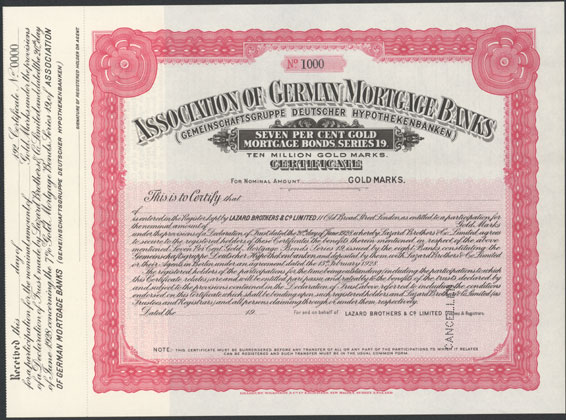 Nº 1000
ASSOCIATION OF GERMAN MORTGAGE BANKS
(GEMEINSCHAFTSGRUPPE DEUTSCHER HYPOTHEKENBANKEN)
SEVEN PER CENT GOLD
MORTGAGE BONDS SERIES 19.
TEN MILLION GOLD MARKS.
CERTIFICATE
FOR NOMINAL AMOUNT GOLD MARKS.
This is to Certify that
of
is entered in the Register kept by LAZARD BROTHERS & Cº LIMITED 11 Old Broad Street London, as entitled to a participation for
the nominal amount of Gold Marks
under the provisions of a Declaration of Trust dated the day of June 1928, whereby Lazard Brothers & Co. Limited, agree
to secure to the registered holders of these Certificates the benefits therein mentioned in respect of the above
mentioned Seven Per Cent Gold Mortgage Bonds Series 19, issued by the eight Banks, constituting the
Gemeinschaftsgruppe Deutscher Hypothekenbanken and deposited by them with Lazard Brothers & Co. Limited
or their Agents in Berlin under an agreement dated the February 1928.
The registered holders of the participations for the time being outstanding (including the participations to which
this Certificate relates) are and will be entitled pari passu and rateably to the benefit of the trusts declared by
and subject to the provisions contained in the Declaration of Trust above referred to including the conditions
endorsed on this Certificate which shall be binding upon such registered holders and Lazard Brothers & Co. Limited (as
Trustees and Registrars) and all persons claiming through or under them respectively.
Dated the 19 For and on behalf of LAZARD BROTHERS & Cº LIMITED Trustees & Registrars.
CANCELLED
NOTE: THIS CERTIFICATE MUST BE SURRENDERED BEFORE ANY TRANSFER OF ALL OR ANY PART OF THE PARTICIPATIONS TO WHICH IT RELATES
CAN BE REGISTERED AND SUCH TRANSFER MUST BE IN THE USUAL COMMON FORM.
Received this day of 192 Certificate Nº 0000
for a participation for the nominal amount of Gold Marks, under the provisions
of a Declaration of Trust made by Lazard Brothers & Co. Limited and dated the day
of June 1928 concerning the 7% Gold Mortgage Bonds Series 19 of ASSOCIATION
OF GERMAN MORTGAGE BANKS (GEMEINSCHAFTSGRUPPE DEUTSCHER HYPOTHEKENBANKEN)
SIGNATURE OF REGISTERED HOLDER OR AGENT